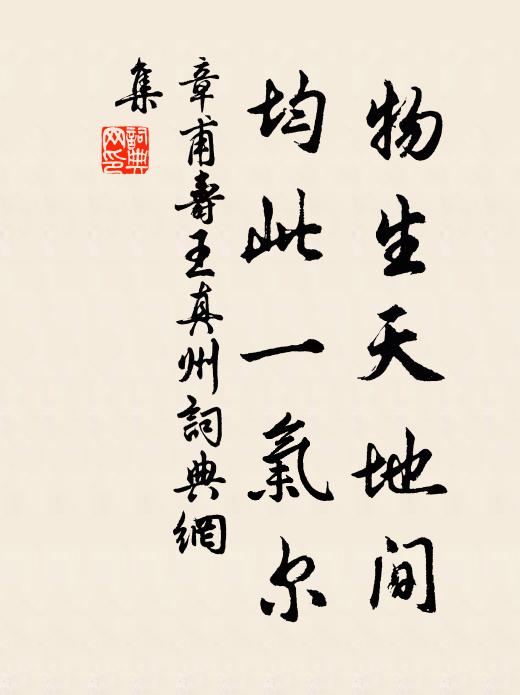 物生天地间
均此一氣尔
章甫壽王真州詞典網
集
詞典網印